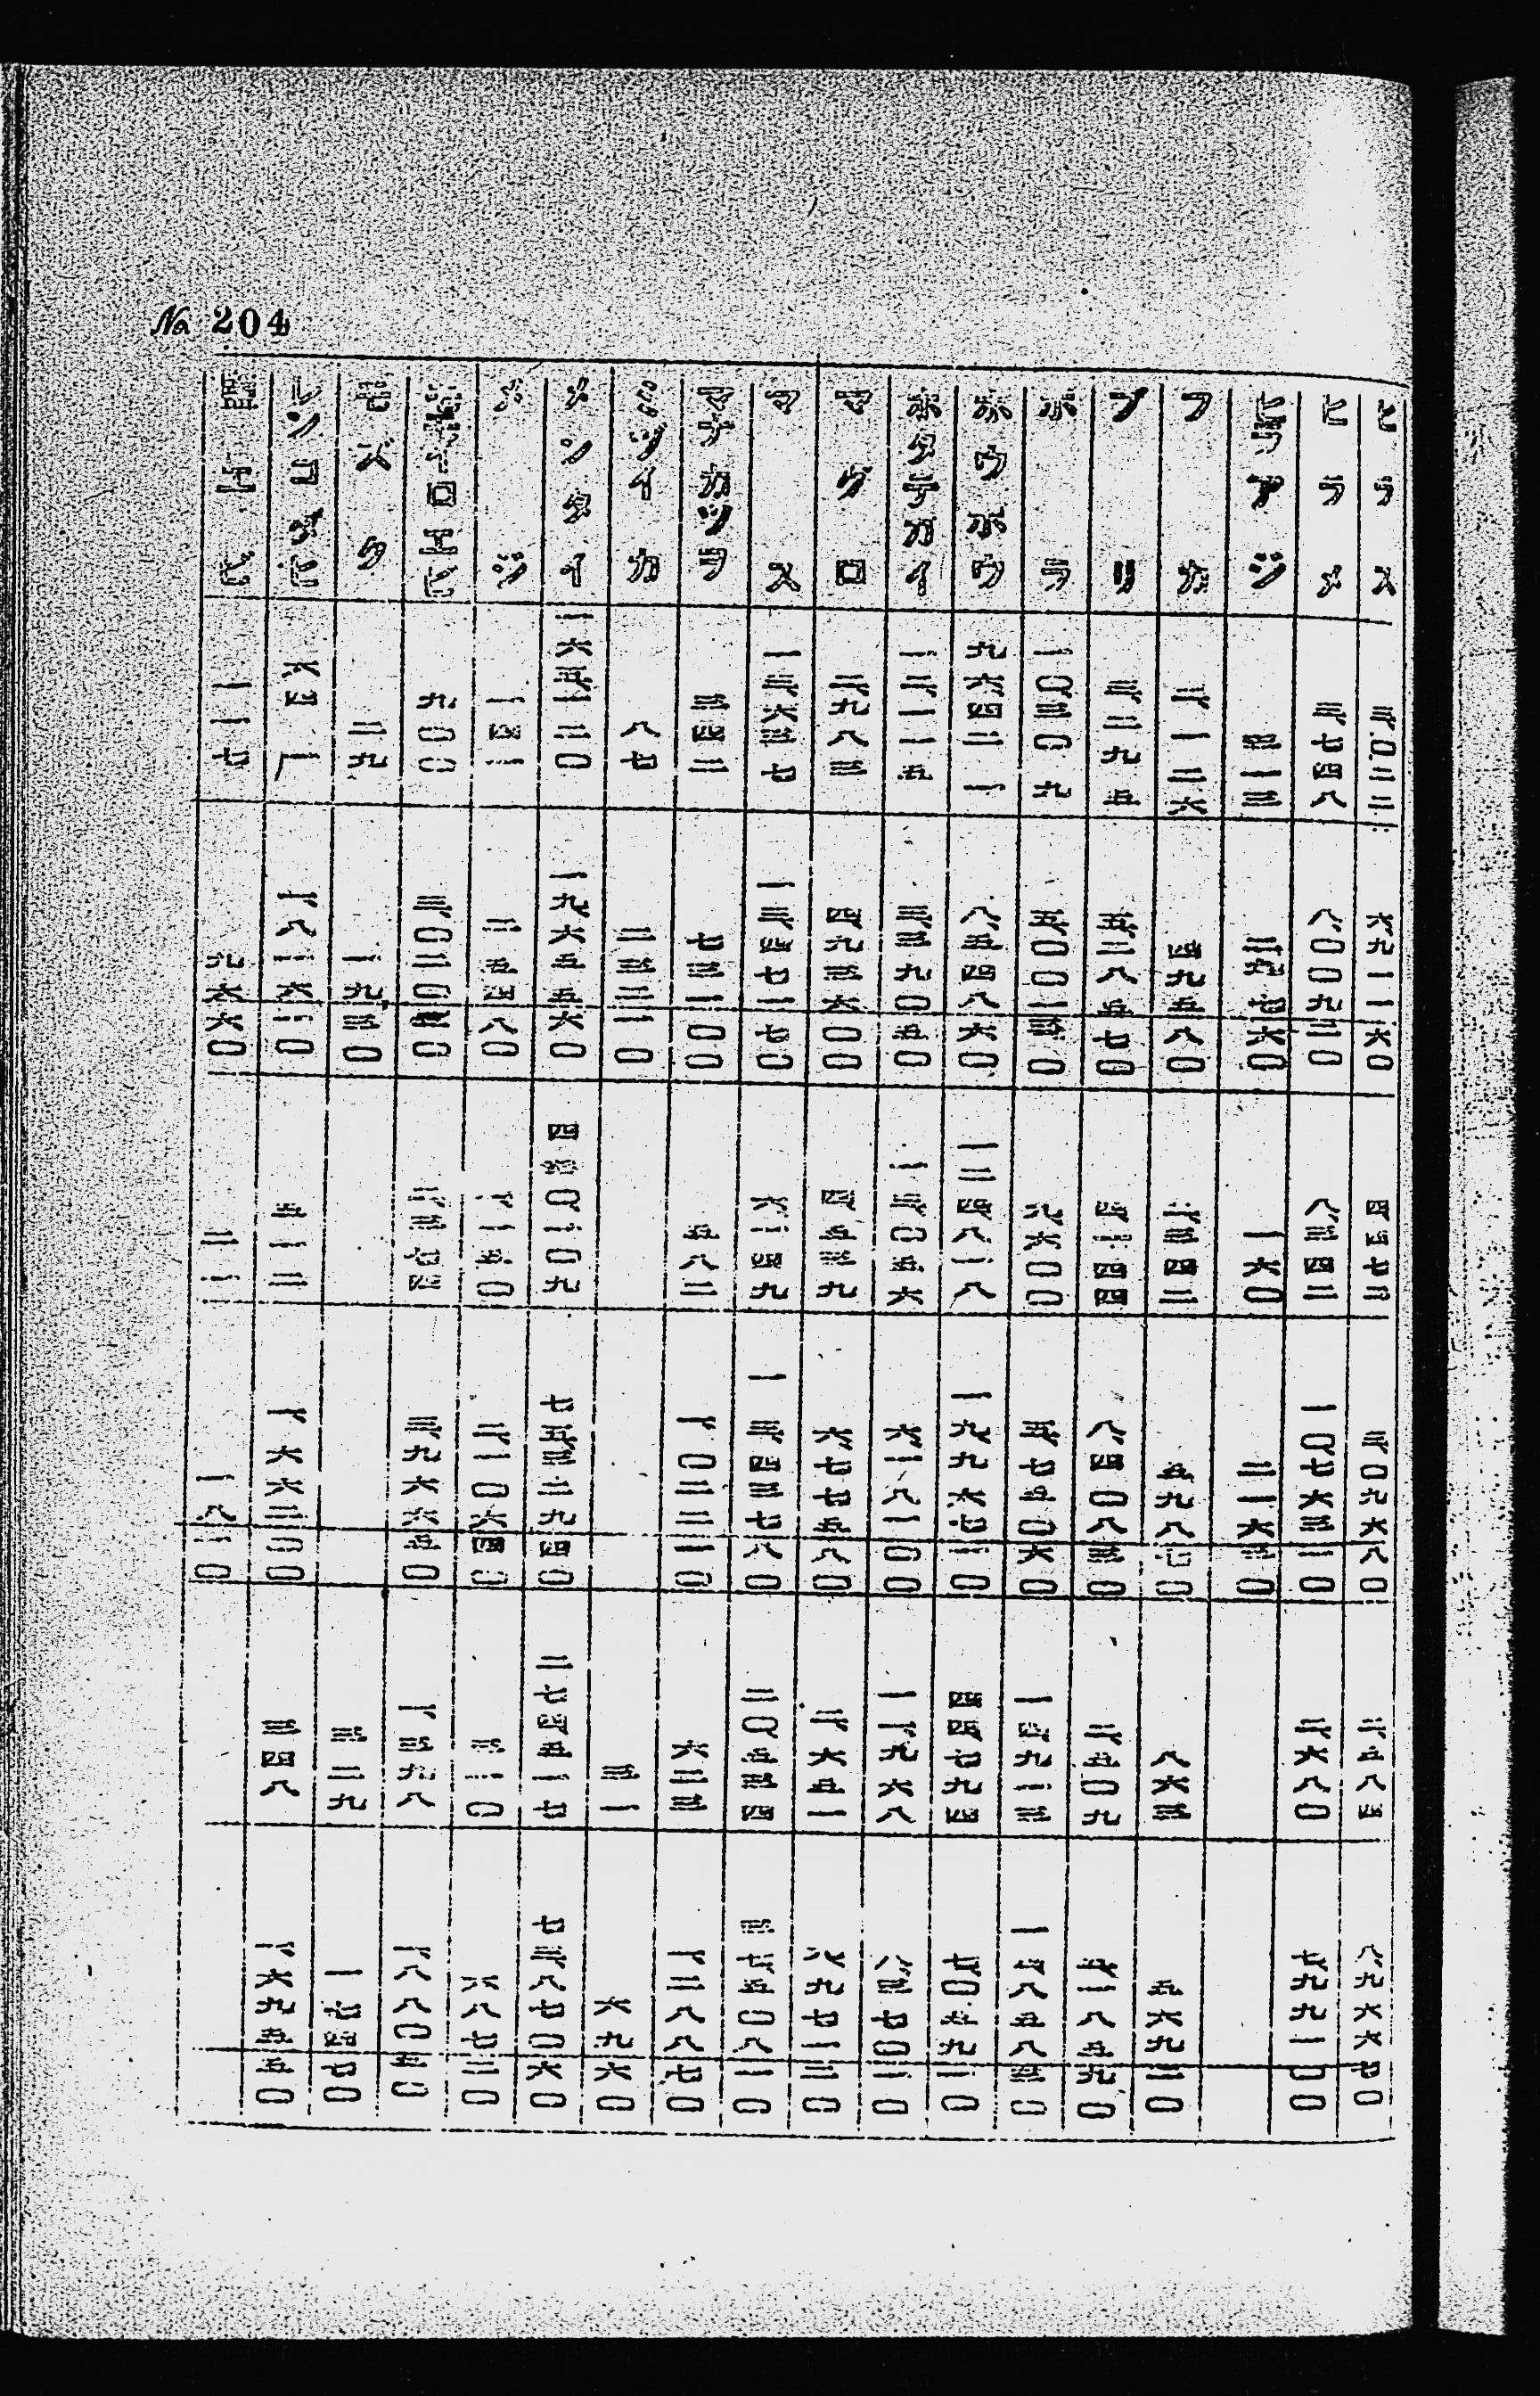 No 204
ヒラス 三〇二二 六九一一六〇 四四七三 三〇九六八〇 二五八四 八九六六七〇
ヒラメ 三七四八 八〇〇九三〇 八三四二 一〇七六三一〇 二六八〇 七九九一〇〇
ヒラアジ 四一三 二九七六〇 一六〇 二一六三〇
フカ 二一二六 四九五八〇 二三四二 五九八七〇 八六三 五六九三〇
ブリ 三二九五 五二八五七〇 四一四四 八四〇八三〇 二五〇九 五一八五九〇
ボラ 一〇三〇九 五〇〇二三〇 九六〇〇 五七五〇六〇 一四九一三 一七八五八三〇
ホウボウ 九六四二一 八五四八六〇 一二四八一八 一九九六七一〇 四四七九四 七〇五九一〇
ホタテガイ 一二一一五 三三九〇五〇 一三〇五六 六一八一〇〇 一一九六八 八三七〇一〇
マグロ 二九八三 四九三六〇〇 四五三九 六七七五八〇 二六五一 八九七一三〇
マス 一三六三七 一三四七一七〇 六一四九 一三四三七八〇 二〇五三四 三七五〇八一〇
マナガツヲ 三四二 七三一〇〇 五八二 一〇二二一〇 六二三 一二八八七〇
ミジイカ 八七 二三二一〇 三一 六九六〇
メンタイ 一六五一二〇 一九六五五六〇 四〇一〇九 七五三二九四〇 二七四五一七 七三八七〇六〇
一四一 二五四八〇 一一五〇 二一〇六四〇 三一〇 六八七三〇
クロエビ 九〇〇 三〇二〇五〇 二三七四 三九六六五〇 一三九八 一八八〇五〇
ズク 二九 一九三〇 三二九 一七四七〇
レンコダヒ 六四一 一八一六一〇 五一二 一六六二〇〇 三四八 一六九五五〇
エビ 一一七 九六六〇 二一 一八一〇